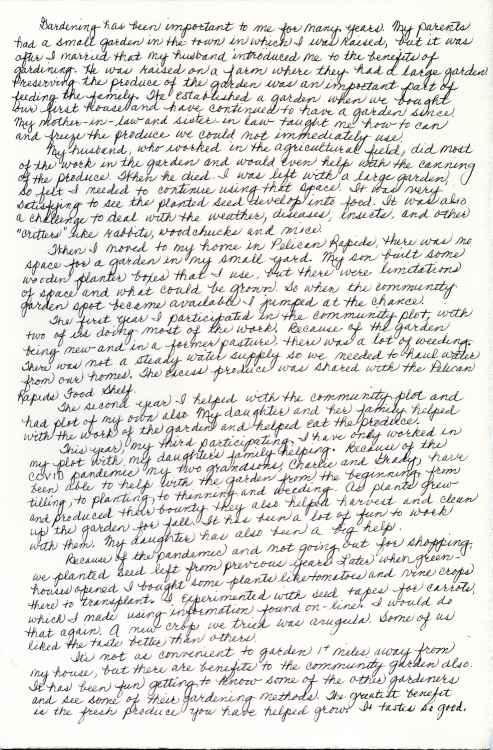 Gardening has been important to me for many years. My parents
had a small garden in the town in which I was raised, but it was
after I married that my husband introduced me to the benefits of
gardining. He was raised on a farm where they had a large garden.
Preserving the produce of the garden was an important part of
feeding the family. We established a garden when we bought
our first house and have continued to have a garden since.
My mother-in-law and sister-in law taught me how to can
and freeze the produce we could not immediately use.
My husband, who worked in the agricultural field, did most
of the work in the garden and would even help with the canning
of the produce. When he died I was left with a large garden,
so felt I needed to continue using that space. It was very
satisfying to see the planted seed develop into food. It was also
a challenge to deal with the weather, diseases, insects, and other
"critters" like rabbits, woodchucks and mice.
When I moved to my home in Pelican Rapids, there was no
space for a garden in my small yard. My son built some
wooden planter boxes that I use, but there were limitations
of space and what could be grown. So when the community
garden spot became available I jumped at the chance.
The first year I participated in the community plot, with
two of us doing most of the work. Because of the garden
being new and in a former pasture, there was a lot of weeding.
There was not a steady water supply so we needed to haul water
from our homes. The excess produce was shared with the Pelican
Rapids Food Shelf.
The second year I helped with the community plot and
had plot of my own also. My daughter and her family helped
with the work of the garden and helped eat the produce.
This year, my third participating, I have only worked in
my plot with my daughters family helping. Because of the
COVID pandemic my two grandsons, Charlie and Grady, have
been able to help with the garden from the beginning, from
tilling, to planting, to thinning and weeding. As plants grew
and produced their bounty they also helped harvest and clean
up the garden for fall. It has been a lot of fun to work
with them. My daughter has also been a big help.
Because of the pandemic and not going out for shopping,
we planted seed left from previous years. Later when green-
houses opened I bought some plants like tomatoes and vine crops
there to transplant. I experimented with seed tapes for carrots,
which I made using information found on-line. I would do
that again. A new crop we tried was arugula. Some of us
liked the taste better than others.
It's not as convenient to garden 1+ miles away from
my house, but there are benefits to the community garden also.
It has been fun getting to know some of the other gardeners
and see some of their gardening methods. The greatest benefit
is the fresh produce you have helped grow. It tastes so good.